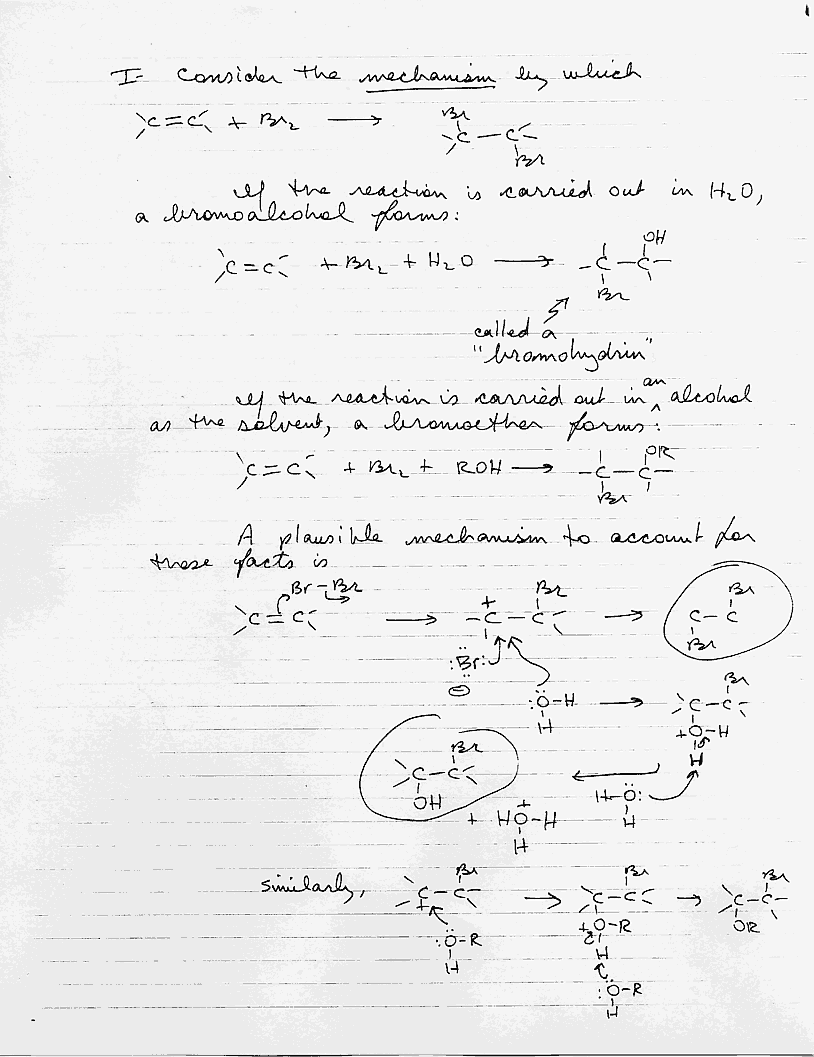 I- Consider the mechanism by which
C=C + Br2 → Br C—C Br
If the reaction is carried out in H2O,
a bromoalcohol forms:
C=C + Br2 + H2O → -C—C- OH Br
called a
"bromohydrin"
If the reaction is carried out in an alcohol
as the solvent, a bromoether forms:
C=C + Br2 + ROH → -C—C- OR Br
A plausible mechanism to account for
these facts is
Br-Br Br Br
C=C → + -C—C → C-C
Br
:Br: ⊖
:O-H → Br C-C
H +O-H
H
Br
C-C
OH H-O:
+ HO+-H H
H
similarly, Br Br Br
C-C → C-C → C-C
+ +O-R OR
:O-R H
H
:O-R
H